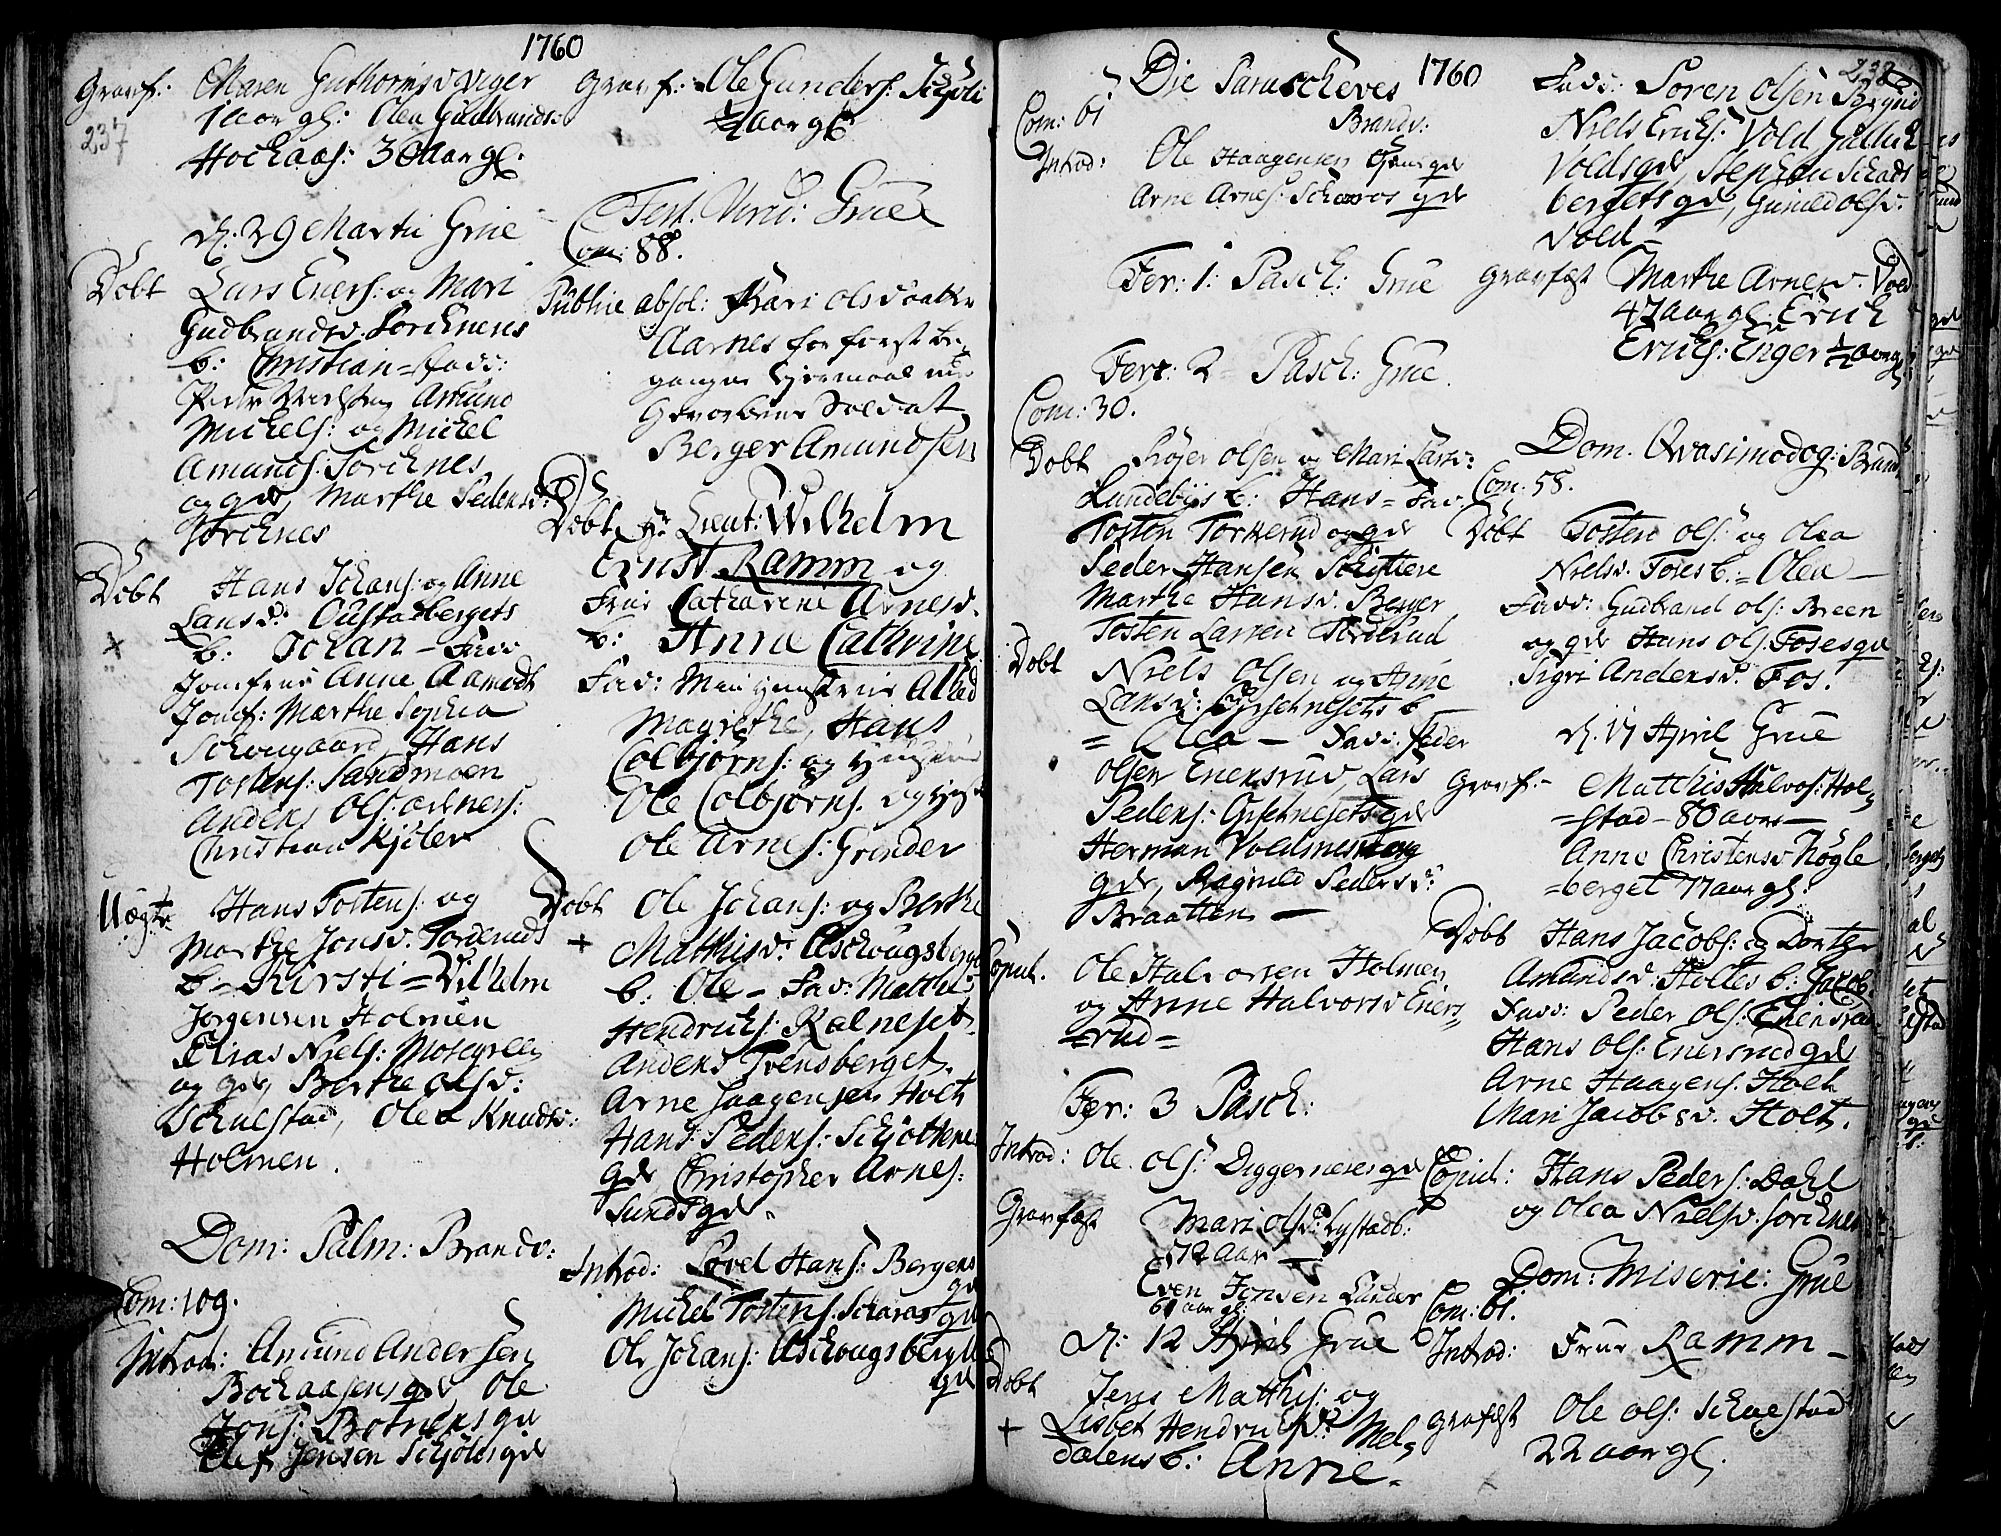 1760
Gravf: Maren Guthormsd Viger
237
1 aar gl: Olea Gudbrands:
Hockaas: 36 aar gl:
d: 29 Martii Grue
Döbt Lars Eners: og Mari
Gudbrandsd. Sorcknens
b: Christian = fadd:
Peder Amund
Michels: og Michel
Amunds: Sorcknes
og gde, Marthe Pedersd:
Sorcknes
Döbt Hans Johans: og Anne
Larsd: Oustadbergets
b: Johan - Fadd
Jomfrue Anne Aamodt
Jomf: Marthe Sophia
Schougaard, Hans
Tostens: Sandmoen
Anders Ols:
Christian Kjöler
Uægte Hans Tostens: og
Marthe Jonsd. Torderuds
b = Kirsti = Vilhelm
Jørgensen Holmen
Elias Niels: Mosegreen
og gde, Berthe olsd:
Schulstad, Olea Knudsd:
Holmen.
Dom: Palm: Brandv:
Com: 109.
Introd: Amund Andersen
Bockaasens gde Ole
Jons: Botners gde
Olef Jensen Schjölsgde
Gravf: Ole Gunders: Schjöli
½ aar gl
Fest. Virid: Grue
Com: 88.
Public absol: Kari olsd
Aarnes for første be-
gangne Leiermaal med
Gevorbene Soldat
Berger Amundsen
Döbt Hr Lieut: Wilhelm
Ernst Ramm og
Frue Catharine Arnesd.
b: Anna Cathrine
Fad: Alhed
Magrethe, Hans
Colbjørns: og
Ole Colbjørns. og
Ole Arnes: Grinder
Döbt Ole Johans: og Berthe
+ Matthisd: Aschougsberge
b: Ole - Fad: Matthis
Hendrichs: Kalneset
Anders Trensberget
Arne Haagensen Holt
Hans Peders: Schjöttene
gde Christopher Arnes:
Sunds gde.
Introd: Povel Hans: Bergens
gde
Michel Tostens. Scharas gde
Ole Johans: Aschougsbergets
gde
1760
238
Die Parascheves
Com: 61 Brandv:
Introd: Ole Haagensen gde
Arne Arnes: Scharos gde
Fer: 1: Pasch: Grue
Fer: 2 Pasch: Grue.
Com: 30.
Döbt Röyer Olsen og Mari Larsd:
Lundebyes b: Hans = Fad:
Tosten Torkerud og gde
Peder Hansen Schjøttere
Marthe Hansd. Berger
Tosten Larsen Torderud
Döbt Niels Olsen og Anne
Larsd: b
= Olea - Fad: Peder
Olsen Enersrud, Lars
Peders: gde
Herman Voldmesberg
gde, Ragnild Pedersd:
Braatten -
Copul. Ole Halvorsen Holmen
og Anne Halvorsd Eners-
=rud=
Fer: 3 Pasch:
Introd: Ole. ols: Diggerneses gde
Gravfæst Mari olsd: Lystadb:
72 aar
Even Jonsen Lunder
60 aar gl:
d: 12 April Grue
Döbt Jens Matthis: og
+ Lisbet Hendrichsd: Mel-
dalens b: Anne.
Fadd: Soren Olsen Bregnid
Niels Erichs: Vold Gulich
Voldsgde, Stephen Schads
bergets gde, Gunild olsd.
Vold=
Gravfæst Marthe Arnesd. Vold
47 aar gl. Erich
Erichs: Enger ½ aar gl
Dom. Qvasimodog: Brandv
Com: 58.
Döbt Tosten ols: og Olea
Nielsd. Foses b: = Olea -
Fadd: Gudbrand ols: Breen
og gde Hans Ols: Foses gde
Sigri Andersd: Fos.
d. 17 April Grue
Gravf.- Matthis Halvos: Hol-
=stad - 80 aar -
Anne Christensd Nögle
=berget 77 aar gl:
Döbt Hans Jacobs: og Dorthe
Amundsd: Holtes b: Jacob
Fadd: Peder Ols: Enersrud
Hans Ols: Enersrud gde
Arne Haagens: Holt
Mari Jacobsd. Holt.
Copul: Hans Peders: Dahl
og Olea Nielsd. Sorcknes
Dom: Miseric: Grue
Com: 61.
Introd: Frue Ramm -
Gravfæst Ole ols: Schulstad
22 aar gl.